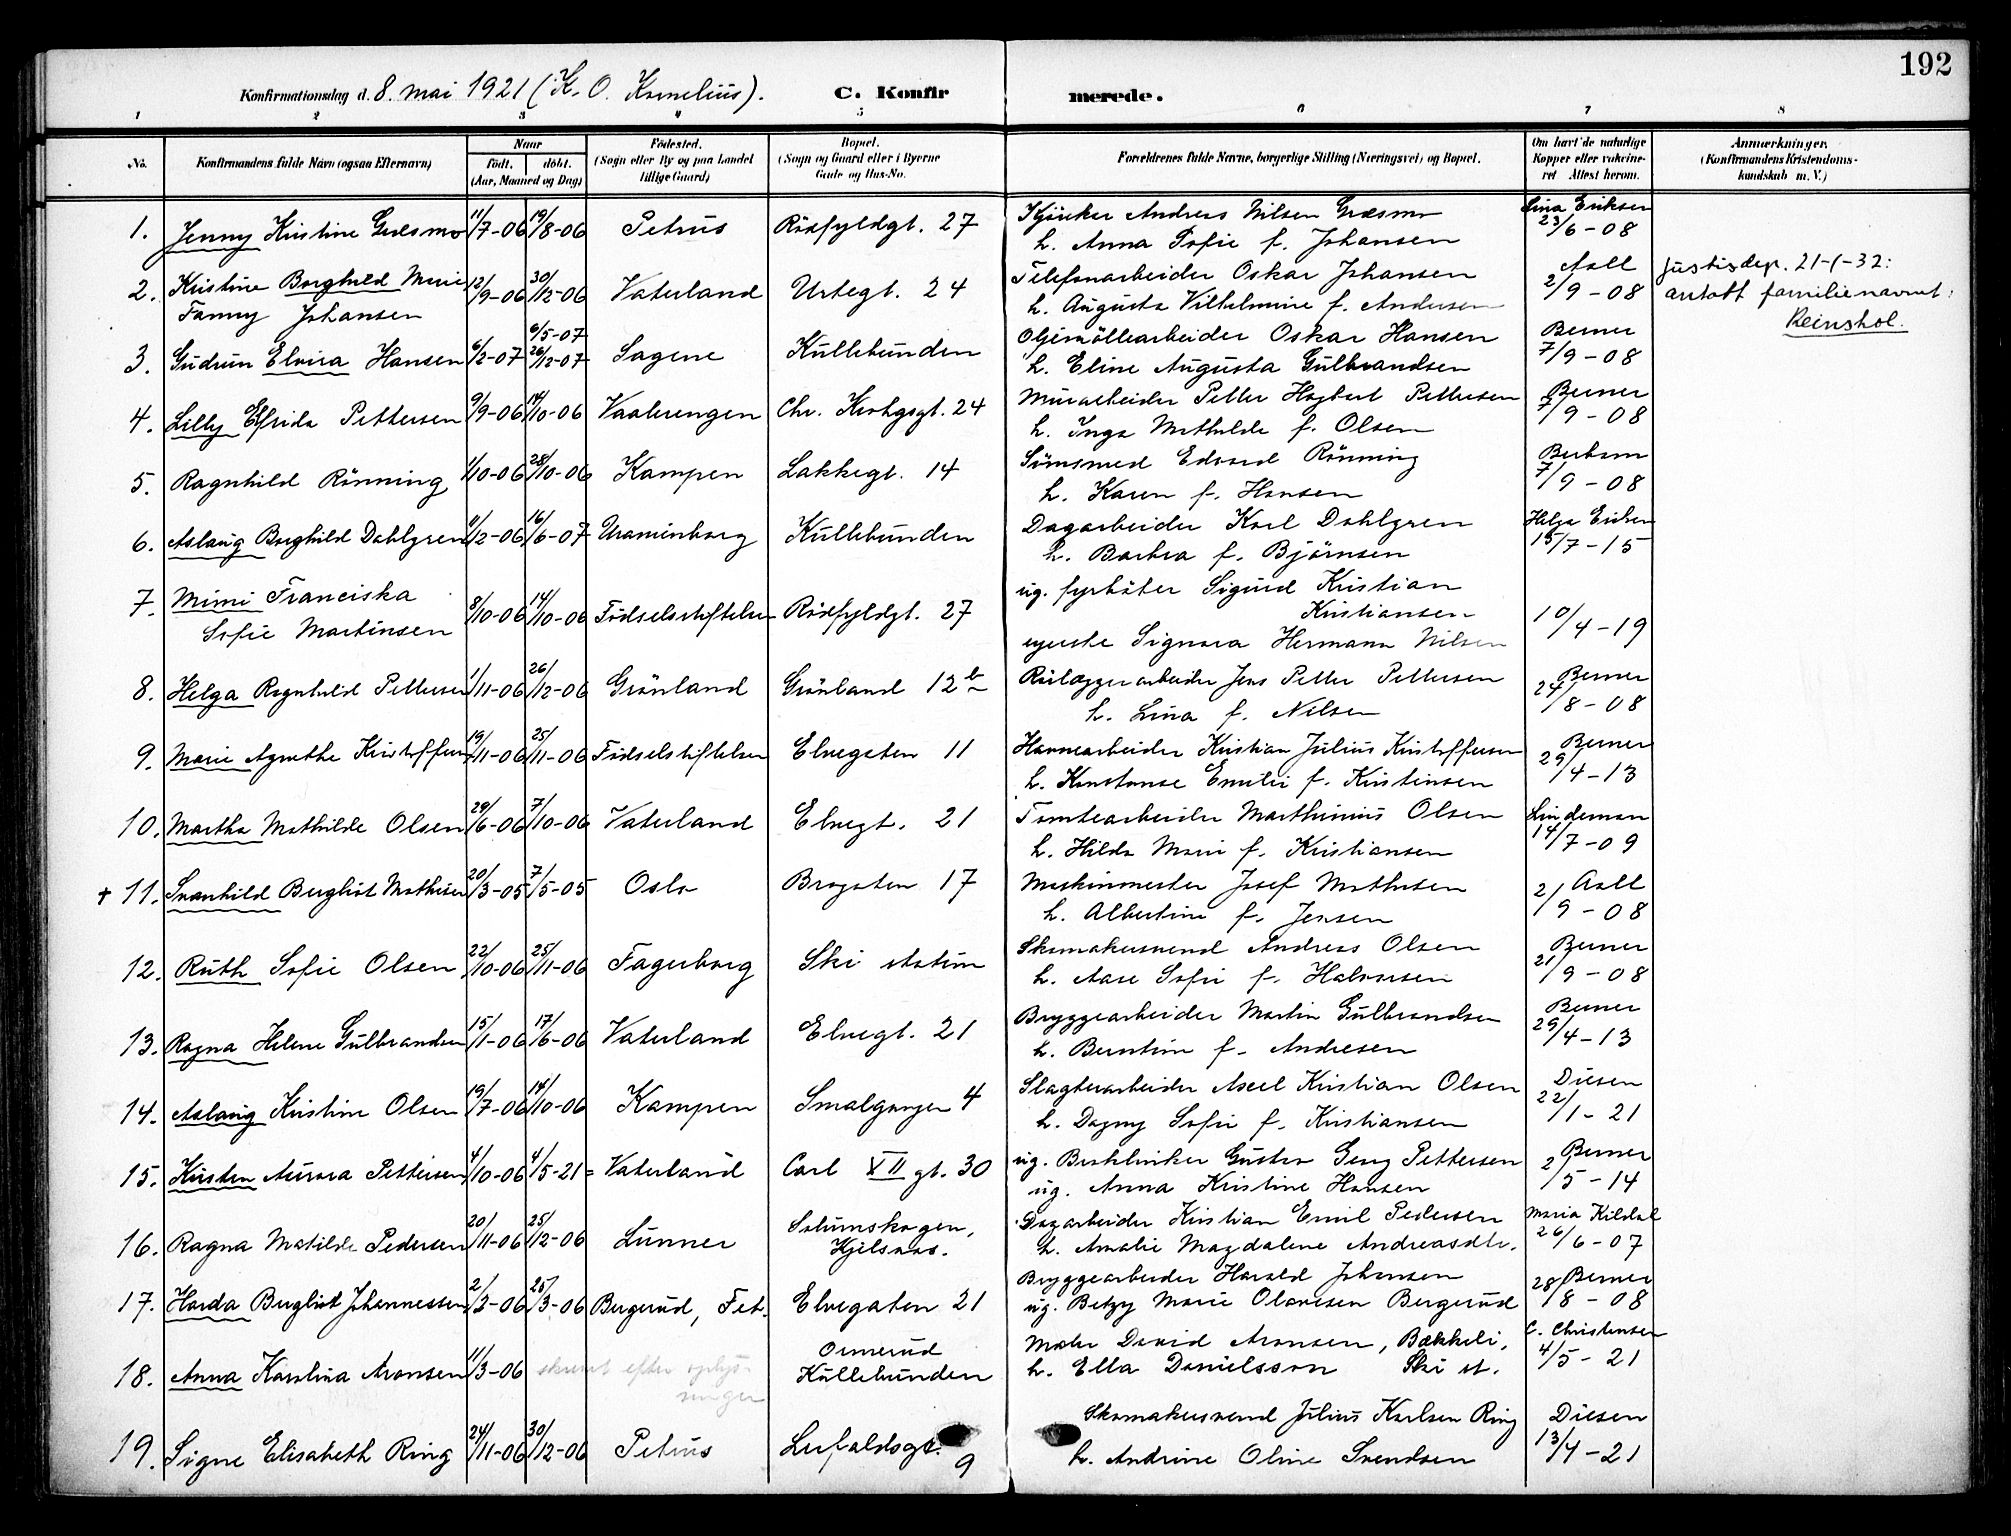 192
Konfirmationsdag d. 8. mai 1921 (K. O. Kornelius). C. Konfirmerede.
1 2 3 4 5 6 7 8
No. Konfirmandens fulde Navn (ogsaa Efternavn) Naar födt. döbt. (Aar, Maaned og Dag) Födested. (Sogn eller By og paa Landet tillige Gaard) Bopæl. (Sogn og Gaard eller i Byerne Gade og Hus-No. Forældrenes fulde Navne, borgerlige Stilling (Næringsvei) og Bopæl. Om havt de naturlige Kopper eller vakcineret Attest herom. Anmærkninger. (Konfirmandens Kristendomskundskab m. V.)
1. Jenny Kristine Græsmo 11/7-06 19/8-06 Petrus Rödfyldgt. 27 Andreas Nilsen Græsmo
h. Anna Sofie f. Johansen Lina Eriksen 23/6-08
2. Kristine Borghild Marie Fanny Johansen 12/9-06 30/12-06 Vaterland Urtegt. 24 Telefonarbeider Oskar Johansen
h. Augusta Vilhelmine f. Andersen Aall 2/9-08 Justisdep. 21-1-32: antatt familienavnet: Reinshol.
3. Gudrun Elvira Hansen 6/2-07 6/5-07 26/12-07 Sagene Kullebunden Oljemöllearbeider Oskar Hansen
h. Eline Augusta Gulbrandsen Berner 7/9-08
4. Lilly Elfrida Pettersen 9/9-06 14/10-06 Vaalerengen Chr. Krohgsgt. 24 Murarbeider Petter Hagbert Pettersen
h. Inga Mathilde f. Olsen Berner 7/9-08
5. Ragnhild Rönning 1/10-06 28/10-06 Kampen Lakkegt. 14 Sömsmed Edvard Rönning
h. Karen f. Hansen 7/9-08
6. Aslaug Borghild Dahlgren 11/12-06 16/6-07 Uranienborg Kullebunden Dagarbeider Karl Dahlgren
h. Barbra f. Björnsen Helga Eriksen 15/7-15
7. Mimi Franciska Sofie Martinsen 8/10-06 14/10-06 Födselsstiftelsen Rödfyldgt. 27 ug. fyrböter Sigurd Kristian Kristiansen
Signora Hermana Nilsen 10/4-19
8. Helga Ragnhild Pettersen 1/11-06 26/12-06 Grönland Grönland 12 b Rörlæggerarbeider Jens Petter Pettersen
h. Lina f. Nilsen Berner 24/8-08
9. Marie Agnethe Kristoffersen 19/11-06 25/11-06 Födselsstiftelsen Elvegaten 11 Havnearbeider Kristian Julius Kristoffersen
h. Konstanse Emilie f. Kristensen Berner 29/4-13
10. Martha Mathilde Olsen 29/6-06 7/10-06 Vaterland Elvegt. 21 Tomtearbeider Marthinius Olsen
h. Hilda Marie f. Kristiansen Lindeman 14/7-09
+ 11. Svanhild Berghiot Mathisen 20/3-05 7/5-05 Oslo Brogaten 17 Maskinmester Josef Mathisen
h. Albertine f. Jensen Aall 21/9-08
12. Ruth Sofie Olsen 22/10-06 25/11-06 Fagerborg Ski station Skomakersvend Andreas Olsen
h. Aase Sofie f. Halvorsen Berner 21/9-08
13. Ragna Helene Gulbrandsen 15/1-06 17/6-06 Vaterland Elvegt. 21 Bryggearbeider Martin Gulbrandsen
h. Berntine f. Andresen Berner 29/4-13
14. Aslaug Kristine Olsen 19/7-06 14/10-06 Kampen Smalgangen 4 Slagterarbeider Axel Kristian Olsen
h. Dagny Sofie f. Kristiansen Diesen 22/1-21
15. Kirsten Aurora Pettersen 4/10-06 4/5-21 = Vaterland Carl XII gt. 30 ug. Gustav Georg Pettersen
ug. Anna Kristine Hansen Berner 2/5-14
16. Ragna Matilde Pedersen 20/11-06 25/12-06 Lunner Solumskogen, Kjelsaas. Dagarbeider Kristian Emil Pedersen
h. Amalie Magdalene Andreasdtr. Maria Kildal 26/6-07
17. Harda Bergliot Johannessen 2/3-06 25/3-06 Bergerud, Fet. Elvegaten 21 Bryggearbeider Harald Johansen
ug. Betzy Marie Olavesen Bergerud Berner 28/8-08
18. Anna Karolina Aronsen 11/3-06 skrevet efter oplysninger Ormerud Kullebunden Maler David Aronsen, Bækkeli,
h. Ella Danielsson Ski st. C. Christensen 4/5-21
19. Signe Elisabeth Ring 24/11-06 30/12-06 Petrus Lufaldsgt. 9 Skomakersvend Julius Karlsen Ring
h. Andrine Oline Svendsen Diesen 13/4-21